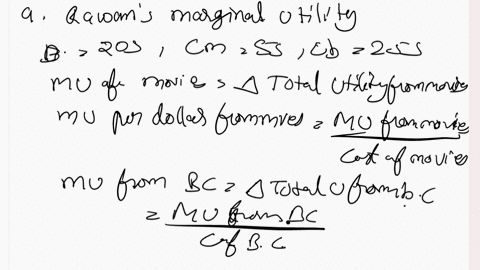 a. Rawam's marginal Utility
B. = 20$, Cm = 5$, Cb = 2.5$
MU of movies = Δ Total Utility from movies
MU per dollar from mves = MU from movies
Cost of movies
MU from BC = Δ Total U from b.C
= MU from BC
C of B.C